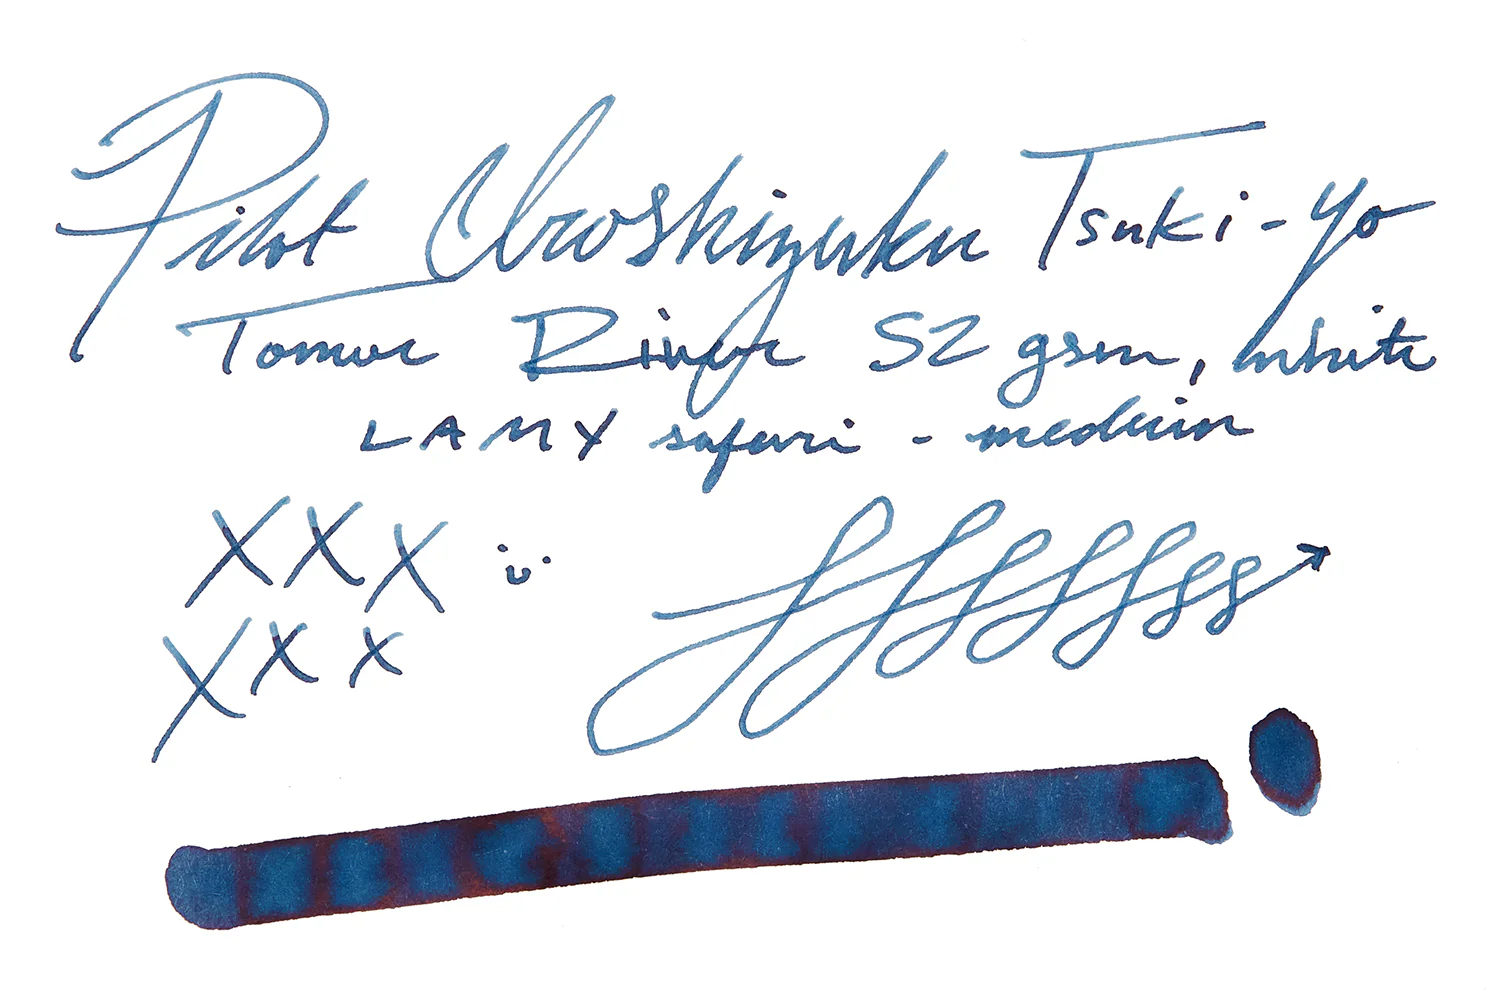 Pilot Iroshizuku Tsuki-yo
Tomoe River 52 gsm, white
LAMY safari - medium
XXX
XXX